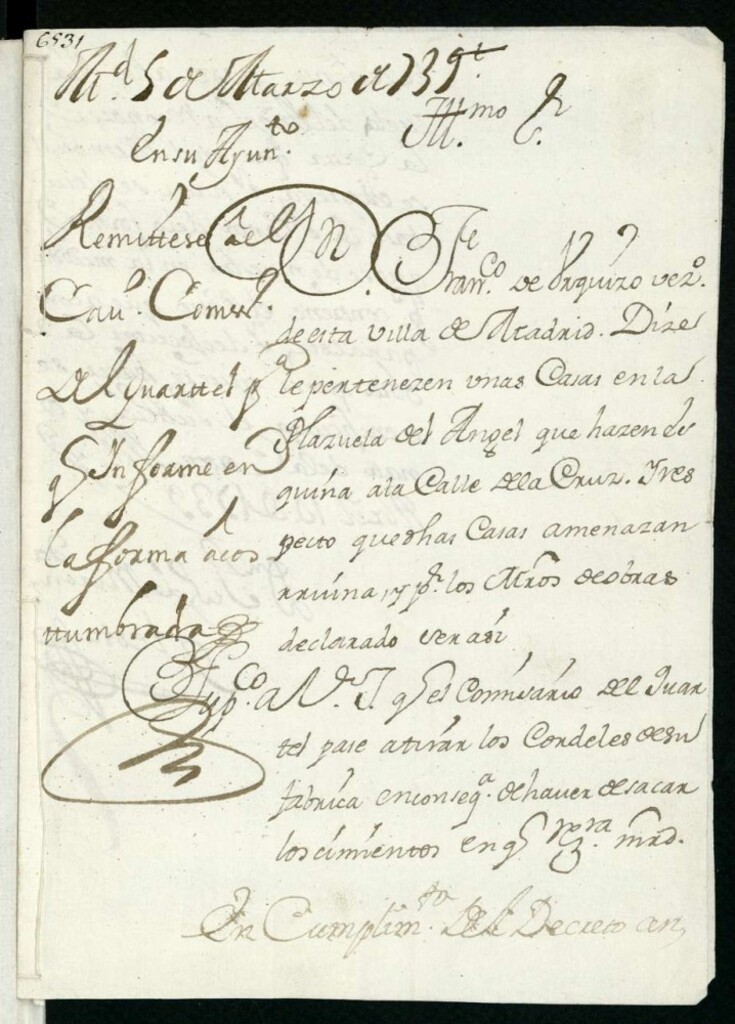 6531
M.d 5 de Marzo de 1739
Ill.mo S.r
En su Ayun.to
Remittese a el S.r
Cav.o Comss.o
del quarttel p.a
q.e Informe en
la forma acos
ttumbrada
Fran.co de Urquizo vez.o
de esta villa de Madrid. Dize
le pertenezen unas Casas en la
Plazuela del Angel que hazen es
quina a la Calle de la Cruz. Y res
pecto que dhas Casas amenazan
rruina, y p.r los Mros de obras
declarado ser asi
Sup.co a V. I. q.e el Comisario del Quar
tel pase a tirar los Cordeles de su
fabrica en conseq.a de haver de sacar
los cimientos en q.e rezivira mrd.
En Cumplim.to del Decreto an,